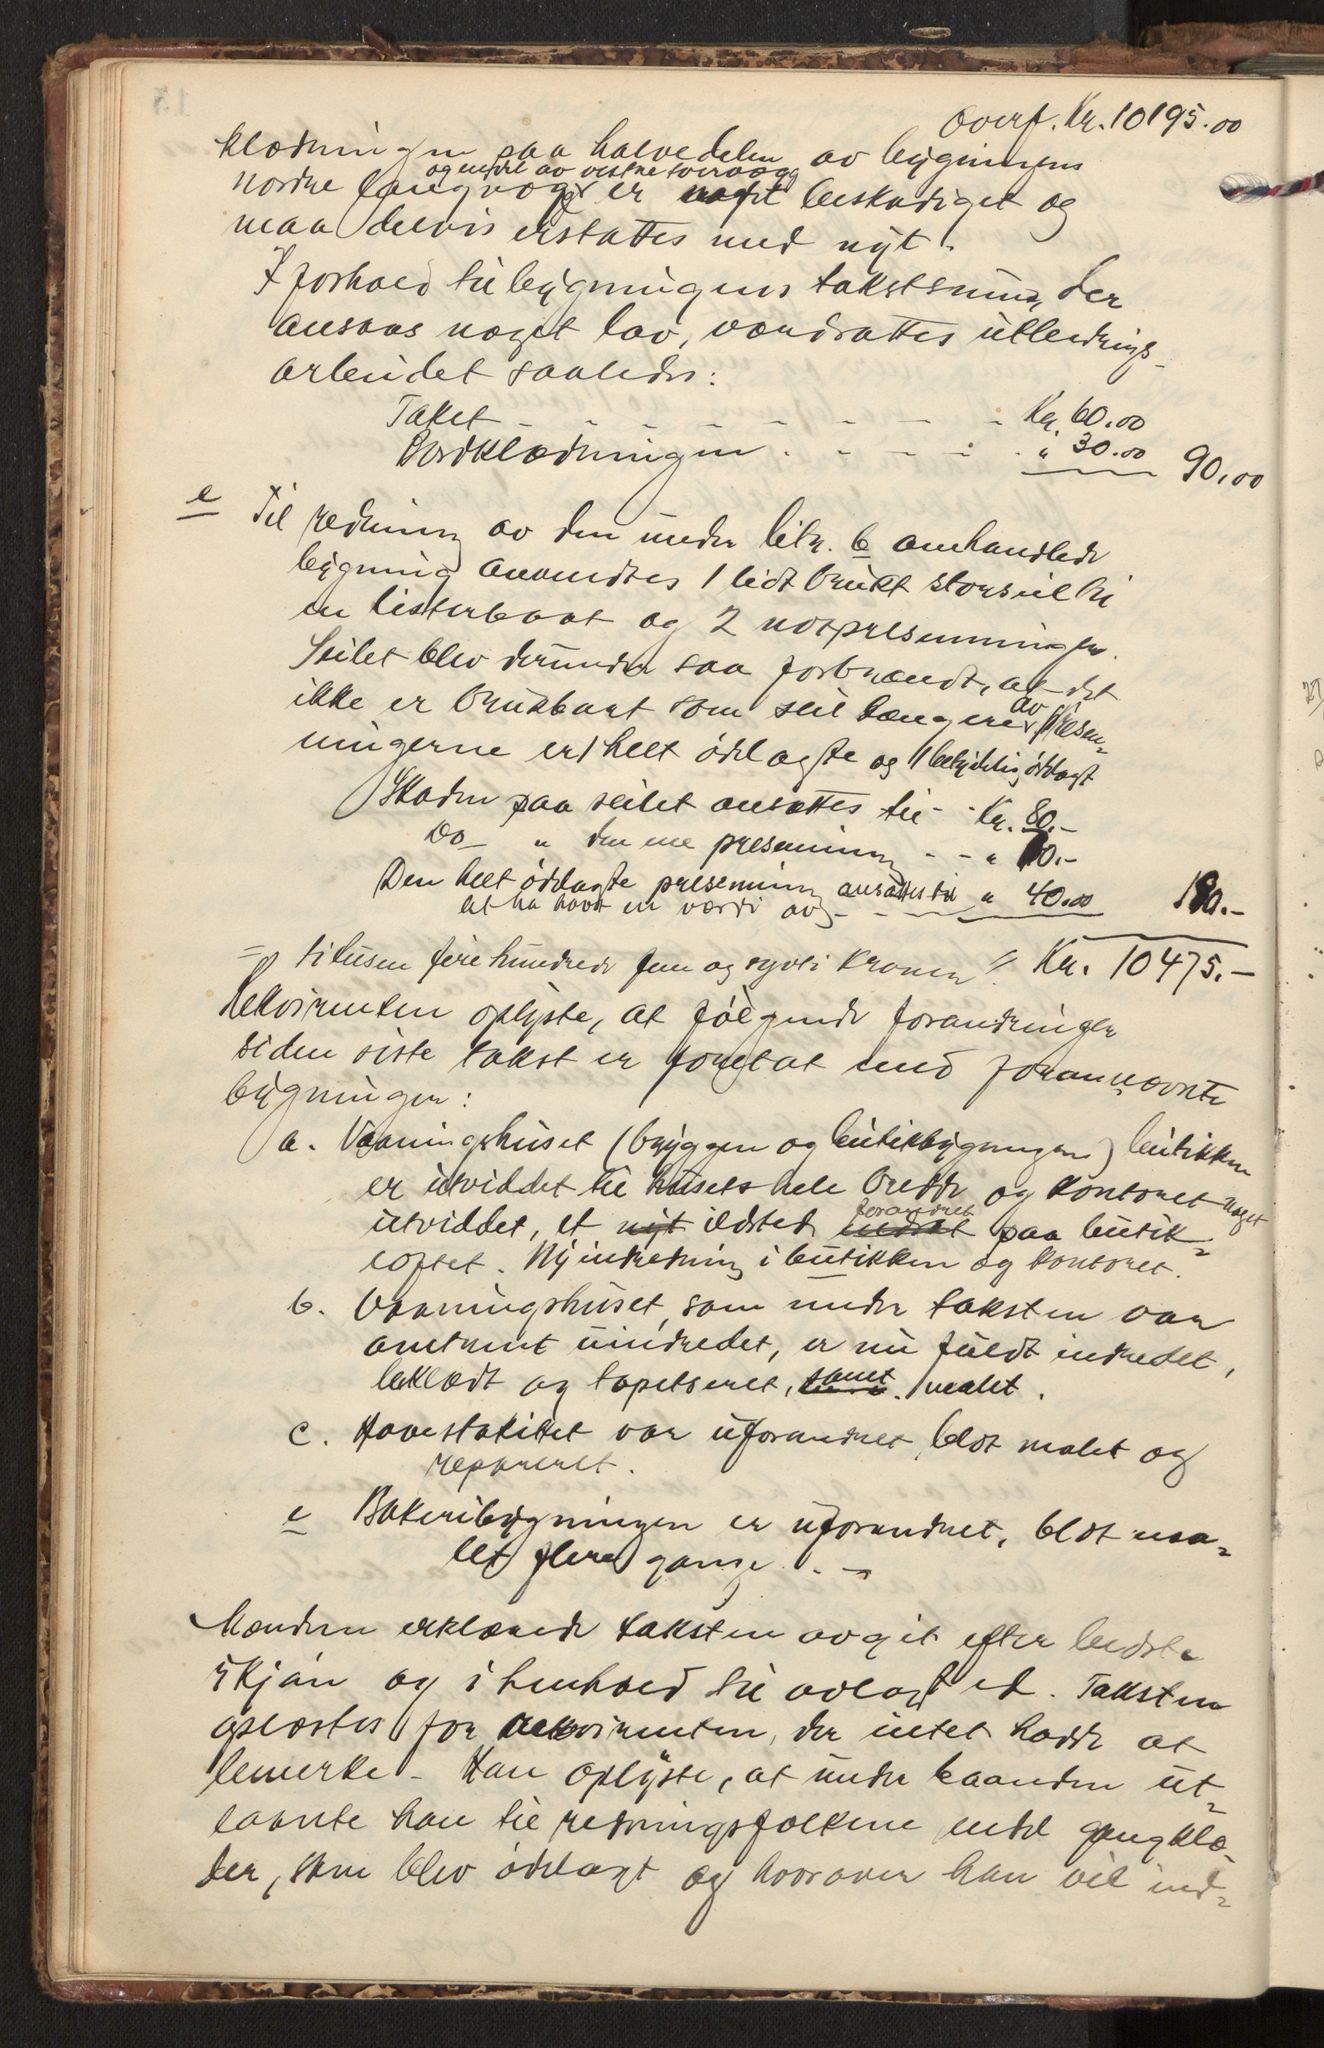 Overf. Kr. 10195.00
klædningen paa halvedelen av bygningens
og endel av vestre tvervæg
nordre langvæg er noget beskadiget og
maa delvis erstattes med nyt.
I forhold til bygningens takstsum, der
ansaas noget lav, værdsattes utbedrings-
arbeidet saaledes:
Taket - - - - - - - - Kr. 60.00
Bordklædningen - - - - - " 30.00 90.00
e Til redning av den under litr. b omhandlede
bygning anvendtes 1 lidt brukt storseil til
en listerbaat og 2 notpresenninger.
Seilet blev derunder saa forbrændt, at det
ikke er brukbart som seil længere, av presen-
ningerne er 1 helt ødelagte og 1 betydelig ødelagt
Skaden paa seilet ansættes til - - Kr. 80.-
Do - " den ene presenning - - " 60.-
Den helt ødelagte presenning ansættes til " 40.00 190.-
at ha havt en værdi av - - -
= titusen fire hundrede fem og sytti kroner // Kr. 10475.-
Rekvirenten oplyste, at følgende forandringer
siden siste takst er foretat med forannævnte
bygninger:
a. Vaaningshuset (bryggen og butikbygningen) butikken
er utviddet til husets hele bredde og kontoret noget
utviddet, et nyt ildsted forandret paa butik-
loftet. Ny indredning i butikken og kontoret.
b. Vaaningshuset, som under taksten var
omtrent uindredet, er nu fuldt indredet,
beklædt og tapetseret, samt malet.
c. Havestakittet var uforandret, blot malet og
reparert.
e Bakeribygningen er uforandret, blot ma-
let flere gange. -
Mændene erklærede taksten avgit efter bedste
skjøn og i henhold til avlagt ed. Taksten
oplæstes for rekvirenten, der intet hadde at
bemerke - Han oplyste, at under branden ut-
laante han til redningsfolkene endel gangklæ-
der, som blev ødelagt og hvorover han vil ind-